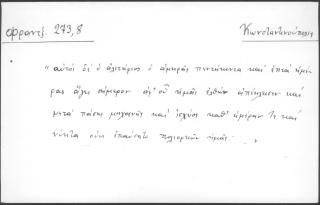 Φραντζ. 273,8
Κωνσταντινούπολις
"αὐτὸς δὲ ὁ ἀλιτήριος ὁ ἀμηρᾶς πεντήκοντα καὶ ἑπτὰ ἡμέ-
ρας ἄχρι σήμερον ἀφ' οὗ ἡμᾶς ἐλθὼν ἀπέκλεισεν καὶ
μετὰ πάσης μηχανῆς καὶ ἰσχύος καθ' ἡμέραν τε καὶ
νύκτα οὐκ ἐπαύσατο πολιορκῶν ἡμᾶς . . ,